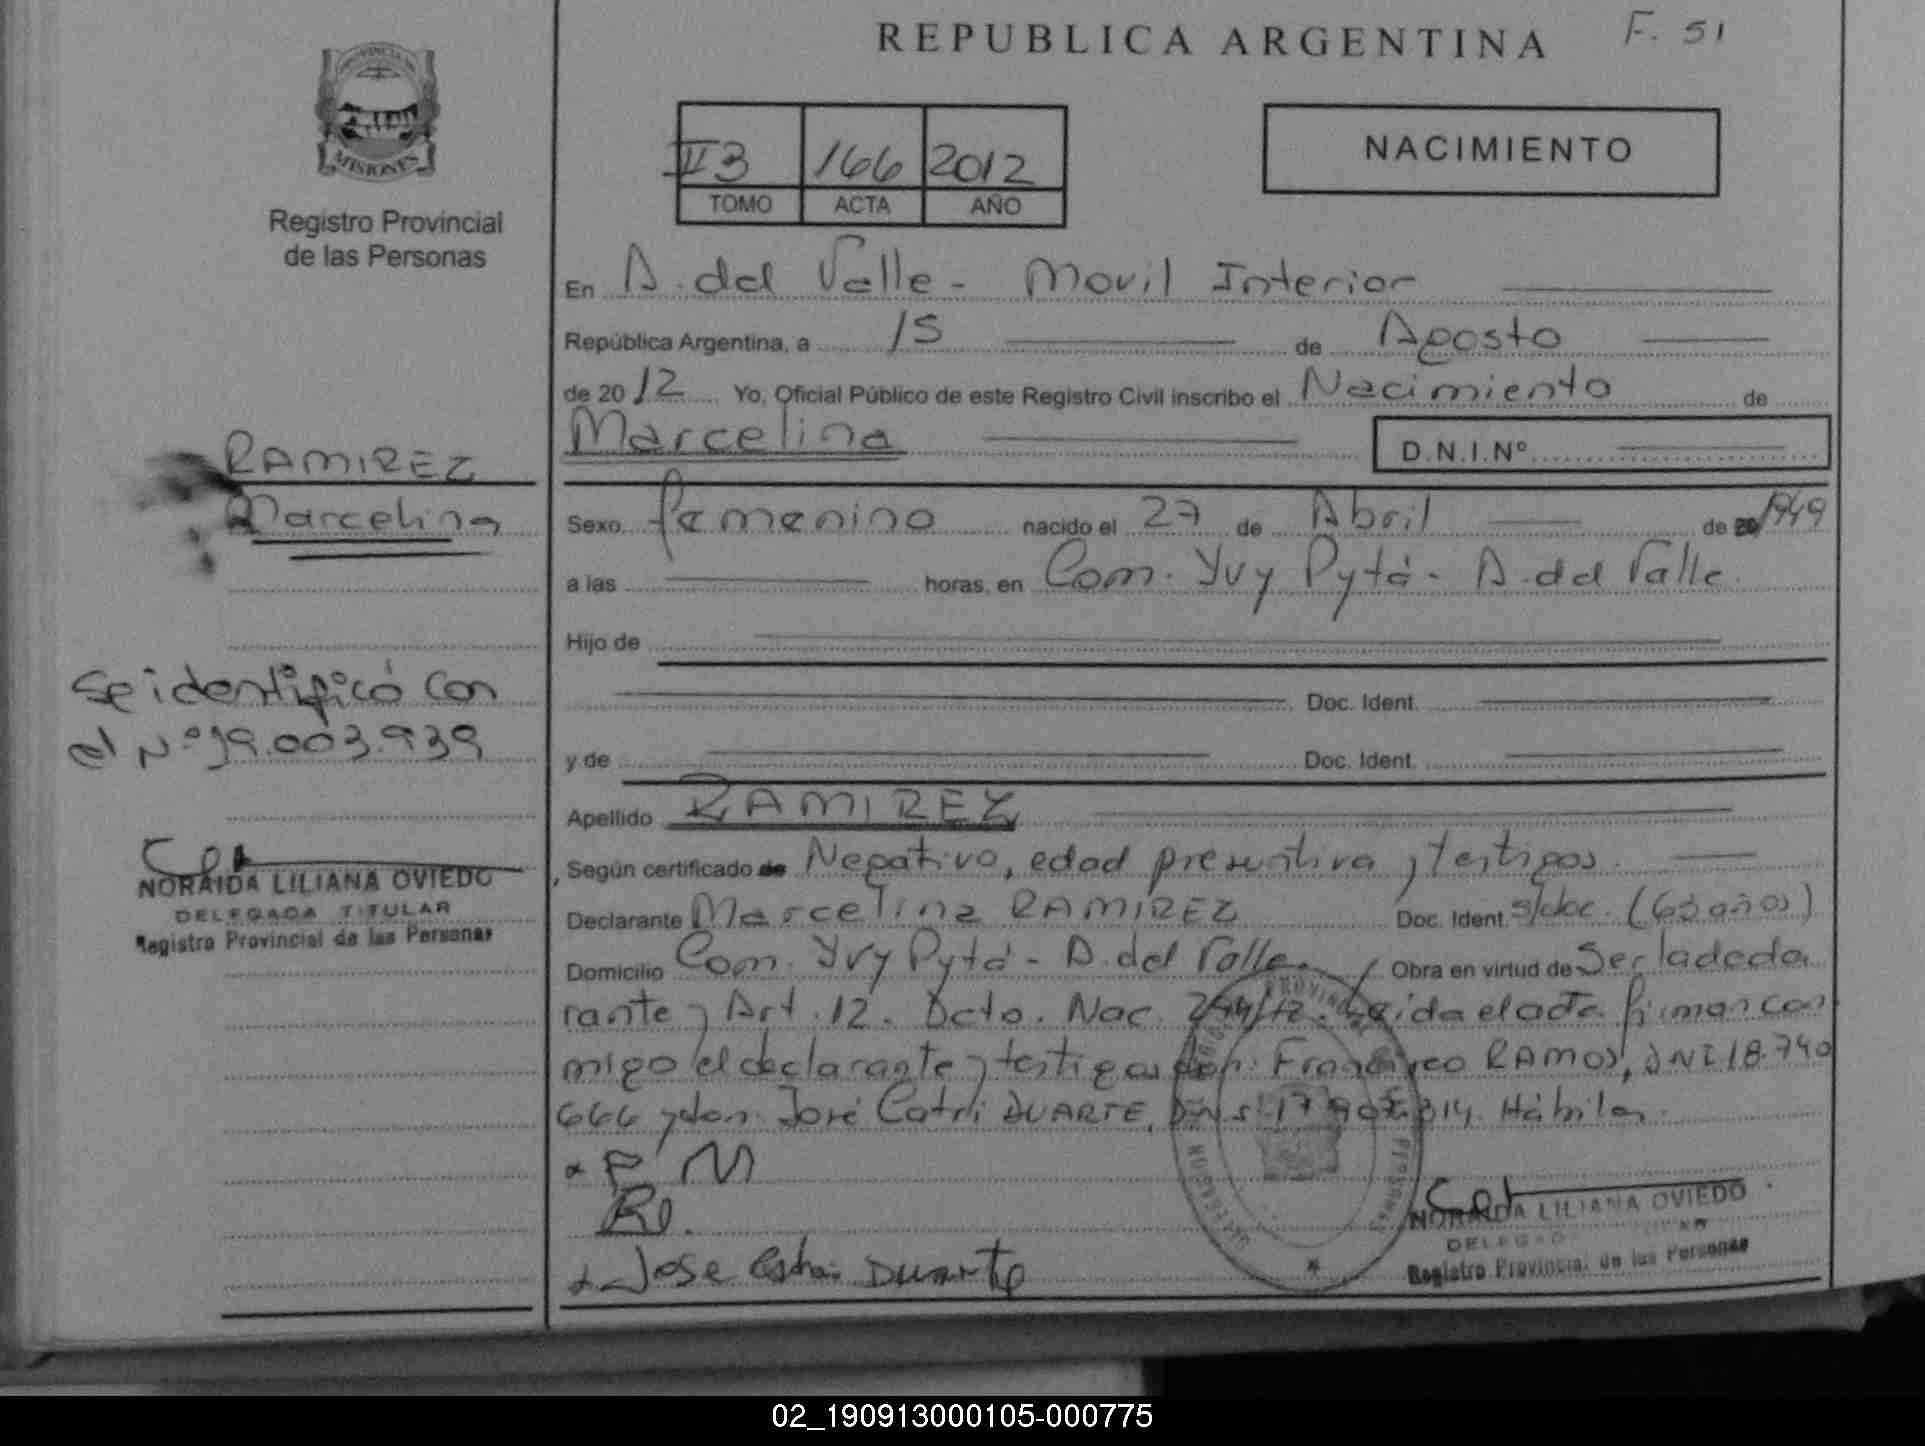 REPUBLICA ARGENTINA F. 51
PROVINCIA DE
MISIONES
Registro Provincial
de las Personas
II 3 166 2012
TOMO ACTA AÑO
NACIMIENTO
En A. del Valle - Movil Interior
República Argentina, a 15 de Agosto
de 2012 Yo, Oficial Público de este Registro Civil inscribo el Nacimiento de
Marcelina D.N.I.Nº
RAMIREZ
Marcelina
Sexo femenino nacido el 27 de Abril de 1949
a las horas, en Com. Yvy Pytá - A. del Valle.
Hijo de
Doc. Ident.
y de Doc. Ident.
Se identificó con
el Nº 19.003.939
Apellido RAMIREZ
Según certificado de Negativo, edad presuntiva y testigos.
Declarante Marcelina RAMIREZ Doc. Ident. s/doc. (63 años)
Domicilio Com. Yvy Pytá - A. del Valle. Obra en virtud de Ser la decla
rante y Art. 12. Dcto. Nac. 294/12. Leída el acta firman con
migo el declarante y testigos don: Francisco RAMOS, DNI 18.740
666 y don: José Catri DUARTE, DNI 17.907.314. Hábiles.
NORAIDA LILIANA OVIEDO
DELEGADA TITULAR
Registro Provincial de las Personas
Jose Duarte
NORAIDA LILIANA OVIEDO
DELEGADA TITULAR
Registro Provincial de las Personas
02_190913000105-000775